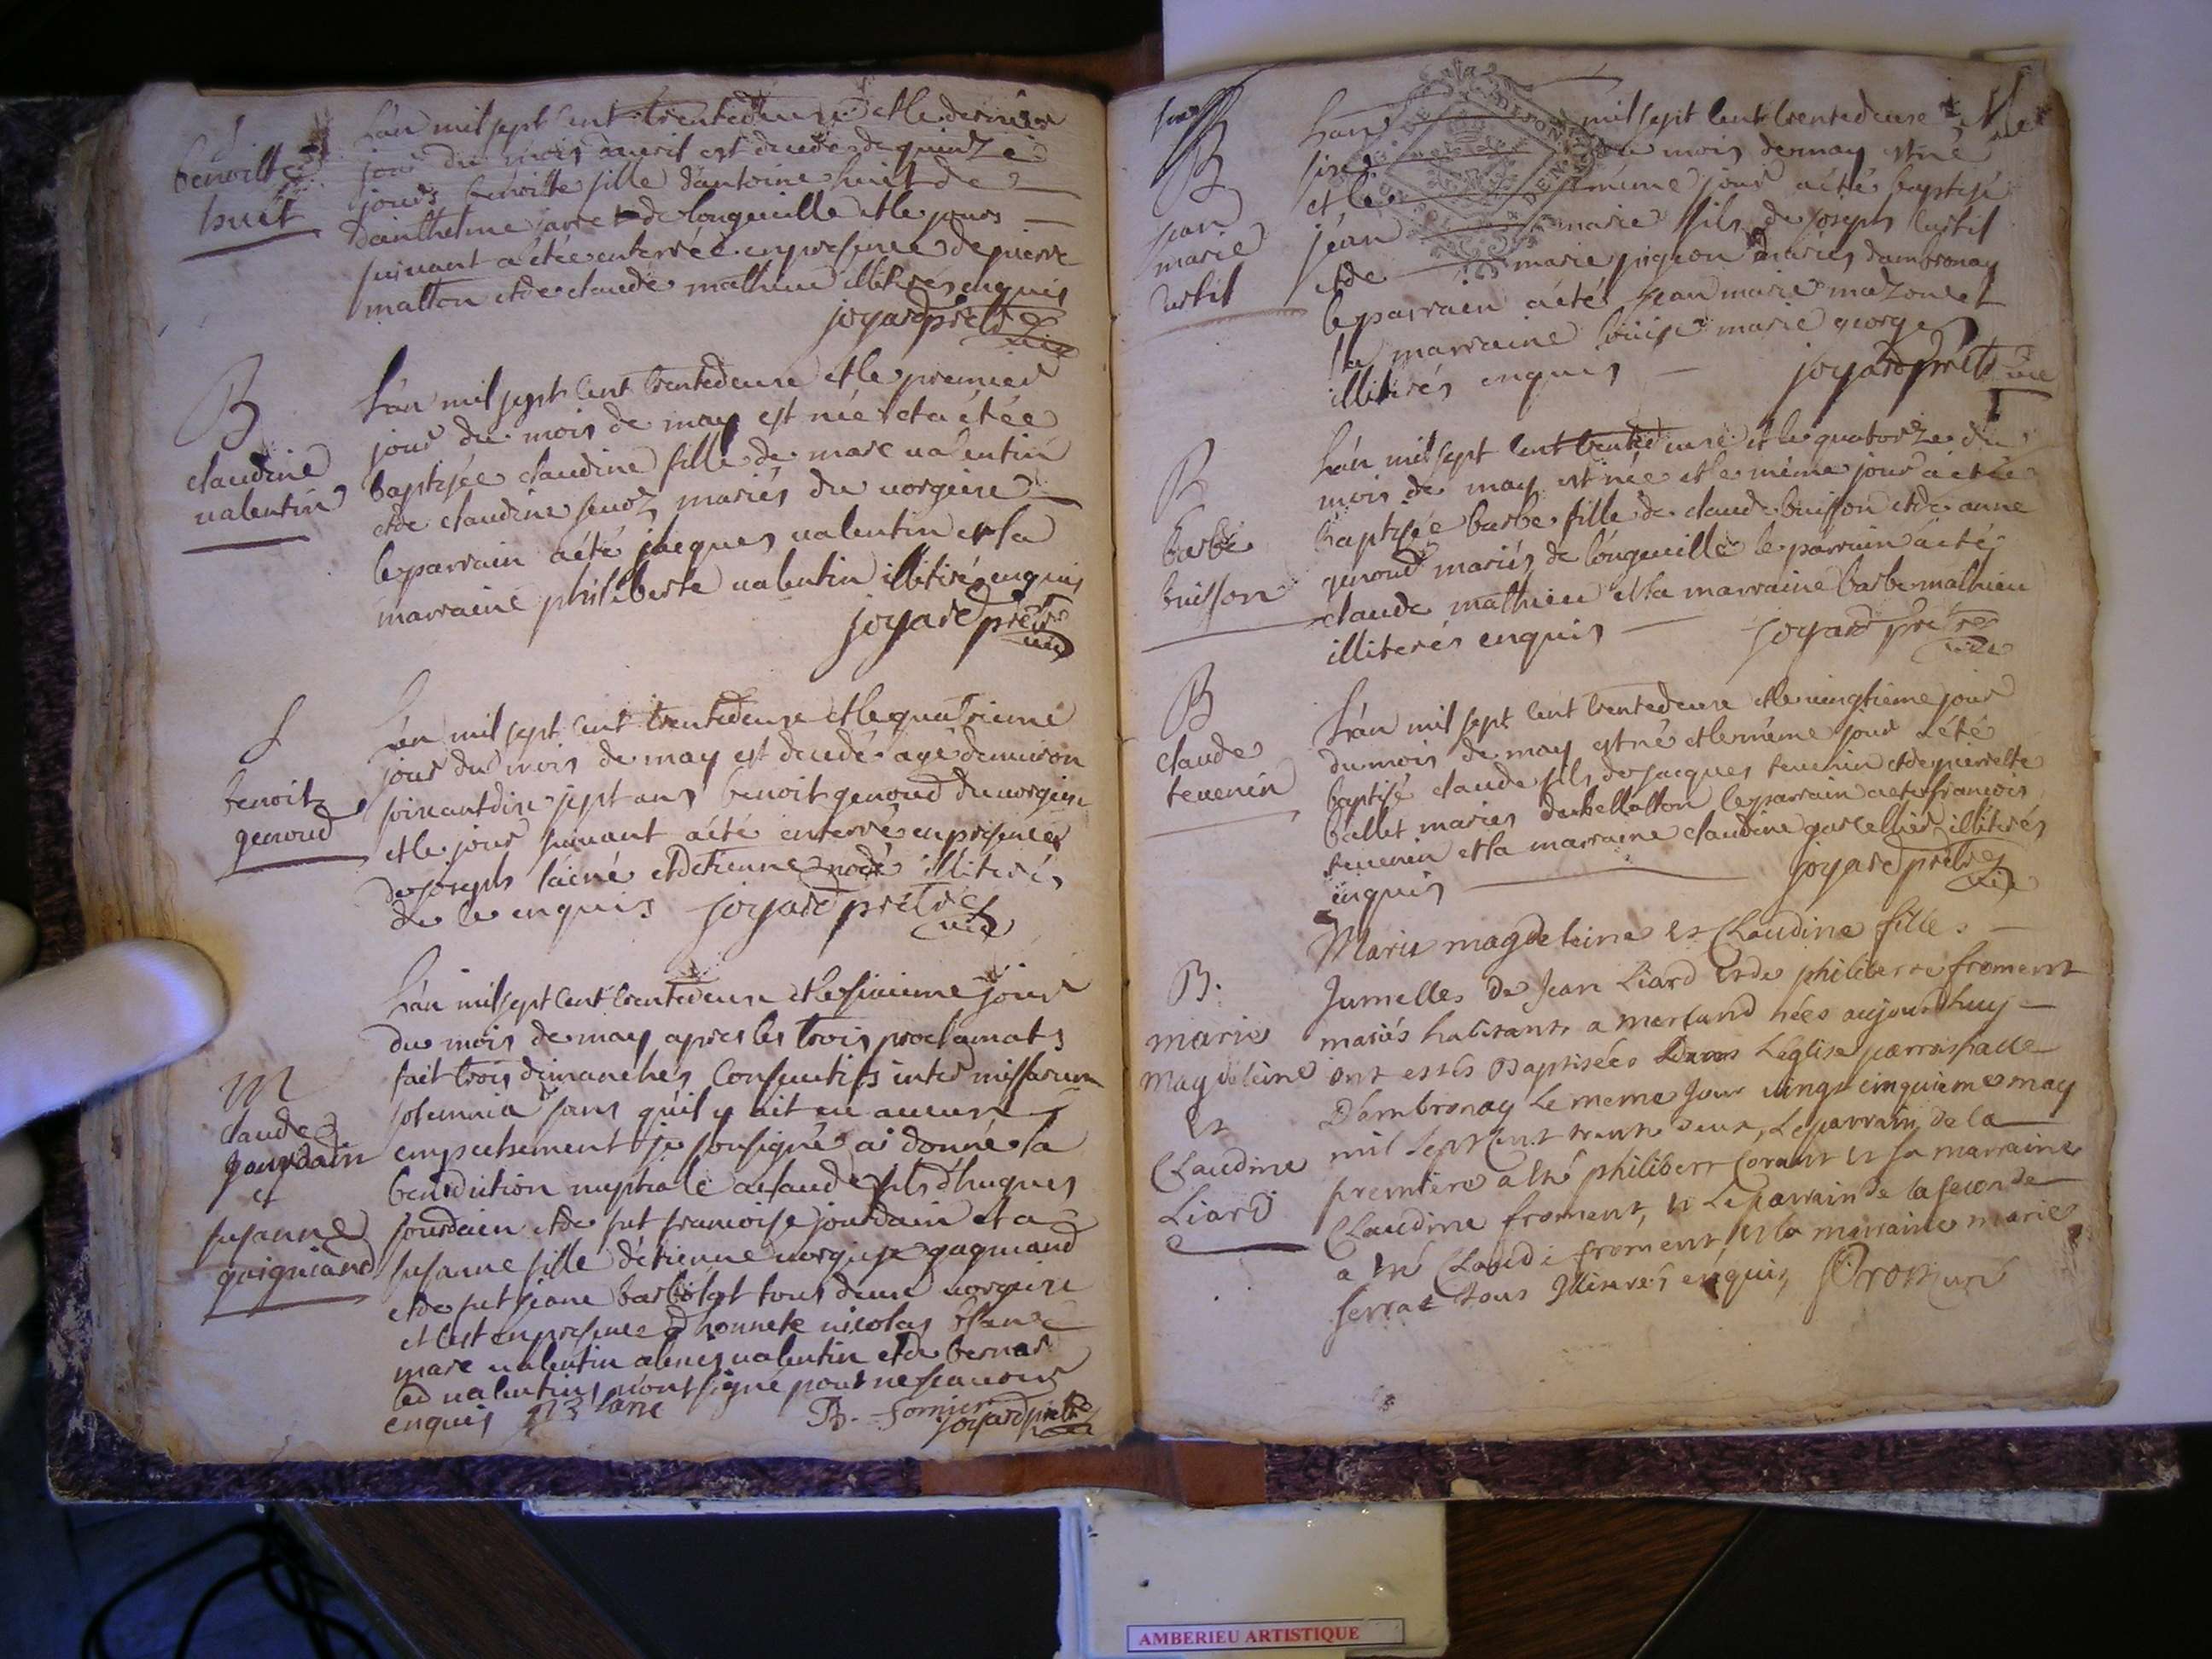 S
benoitte
huet
L'an mil sept cent trentedeux et le dernier
jour du mois d'auril est decedée de quinze
jours benoitte fille d'antoine huet de
d'anthelme jarret de longeuille et le jours
suiuant a étée enterrée en presence de pierre
matton et de claude mathieu illiterés enquis
joyard prêtre
vic
B
claudine
ualentin
L'an mil sept cent trentedeux et le premier
jour du mois de may est née et a étée
baptisée claudine fille de marc ualentin
et de claudine seuoz mariés du uorgeire
le parrain a été jacques ualentin et la
marraine philiberte ualentin illiterés enquis
joyard prêtre
vic
S
benoit
genoud
L'an mil sept cent trentedeux et le quatrieme
jour du mois de may est decedé agé d'enuiron
soixantdix sept ans benoit genoud du uorgeire
et le jour suiuant a été enterré en presence
de joseph lainé et d'etienne nodé illiterés
de ce enquis joyard prêtre
vic
M
claude
jourdain
et
susanne
guigniand
L'an mil sept cent trentedeux et le sixieme jour
du mois de may apres les trois proclamats
fait trois dimanches consecutifs inter missarum
solemnia sans qu'il y ait eu aucun
empechement je sousigné ai donné la
benediction nuptiale a claude fils d'hugues
jourdain et de fut francoise jourdain et a
susanne fille d'etienne uorgieze gagniand
et de fut jeane barbolat tous deux uorgeire
et c'est en presence d'honnete nicolas blanc
marc ualentin alexis ualentin et de bernar
led ualentins n'ont signé pour ne scauoir
enquis n blanc B. fornier
joyard prêtre
B
jean
marie
curtil
L'an mil sept cent trentedeux et le
size du mois de may est né
et le même jour a été baptisé
jean marie fils de joseph curtil
et de marie pigeon mariés d'ambronay
le parrain a été jean marie mazouet
la marraine louise marie george
illiterés enquis joyard prêtre
vic
B
barbe
buisson
L'an mil sept cent trentedeux et le quatorze du
mois de may est née et le même jour a étée
baptisée barbe fille de claude buisson et de anne
genoud mariés de longeuille le parrain a été
claude mathieu et la marraine barbe mathieu
illiterés enquis joyard prêtre
vic
B
claude
teuenin
L'an mil sept cent trentedeux et le uingtieme jour
du mois de may est né et le même jour a été
baptisé claude fils de jacques teuenin et de pierrette
ballet mariés de bellatton le parrain a eté francois
teuenin et la marraine claudine garcellier illiterés
enquis joyard prêtre
vic
B.
marie
magdeleine
et
Claudine
Liard
Marie magdeleine et Claudine filles
Jumelles de Jean Liard et de philiberte froment
mariés habitants a merland nées aujourdhuy
ont estés Baptisées Dans L'église parroissialle
D'ambronay Le meme Jour vingt cinquieme may
mil sept cent trente deux, Le parrain de la
premiere a été philibert Corant et la marraine
Claudine froment, et Le parrain de la seconde
a été Claude froment et la marraine marie
serrat tous Illiterés enquis,
AMBERIEU ARTISTIQUE